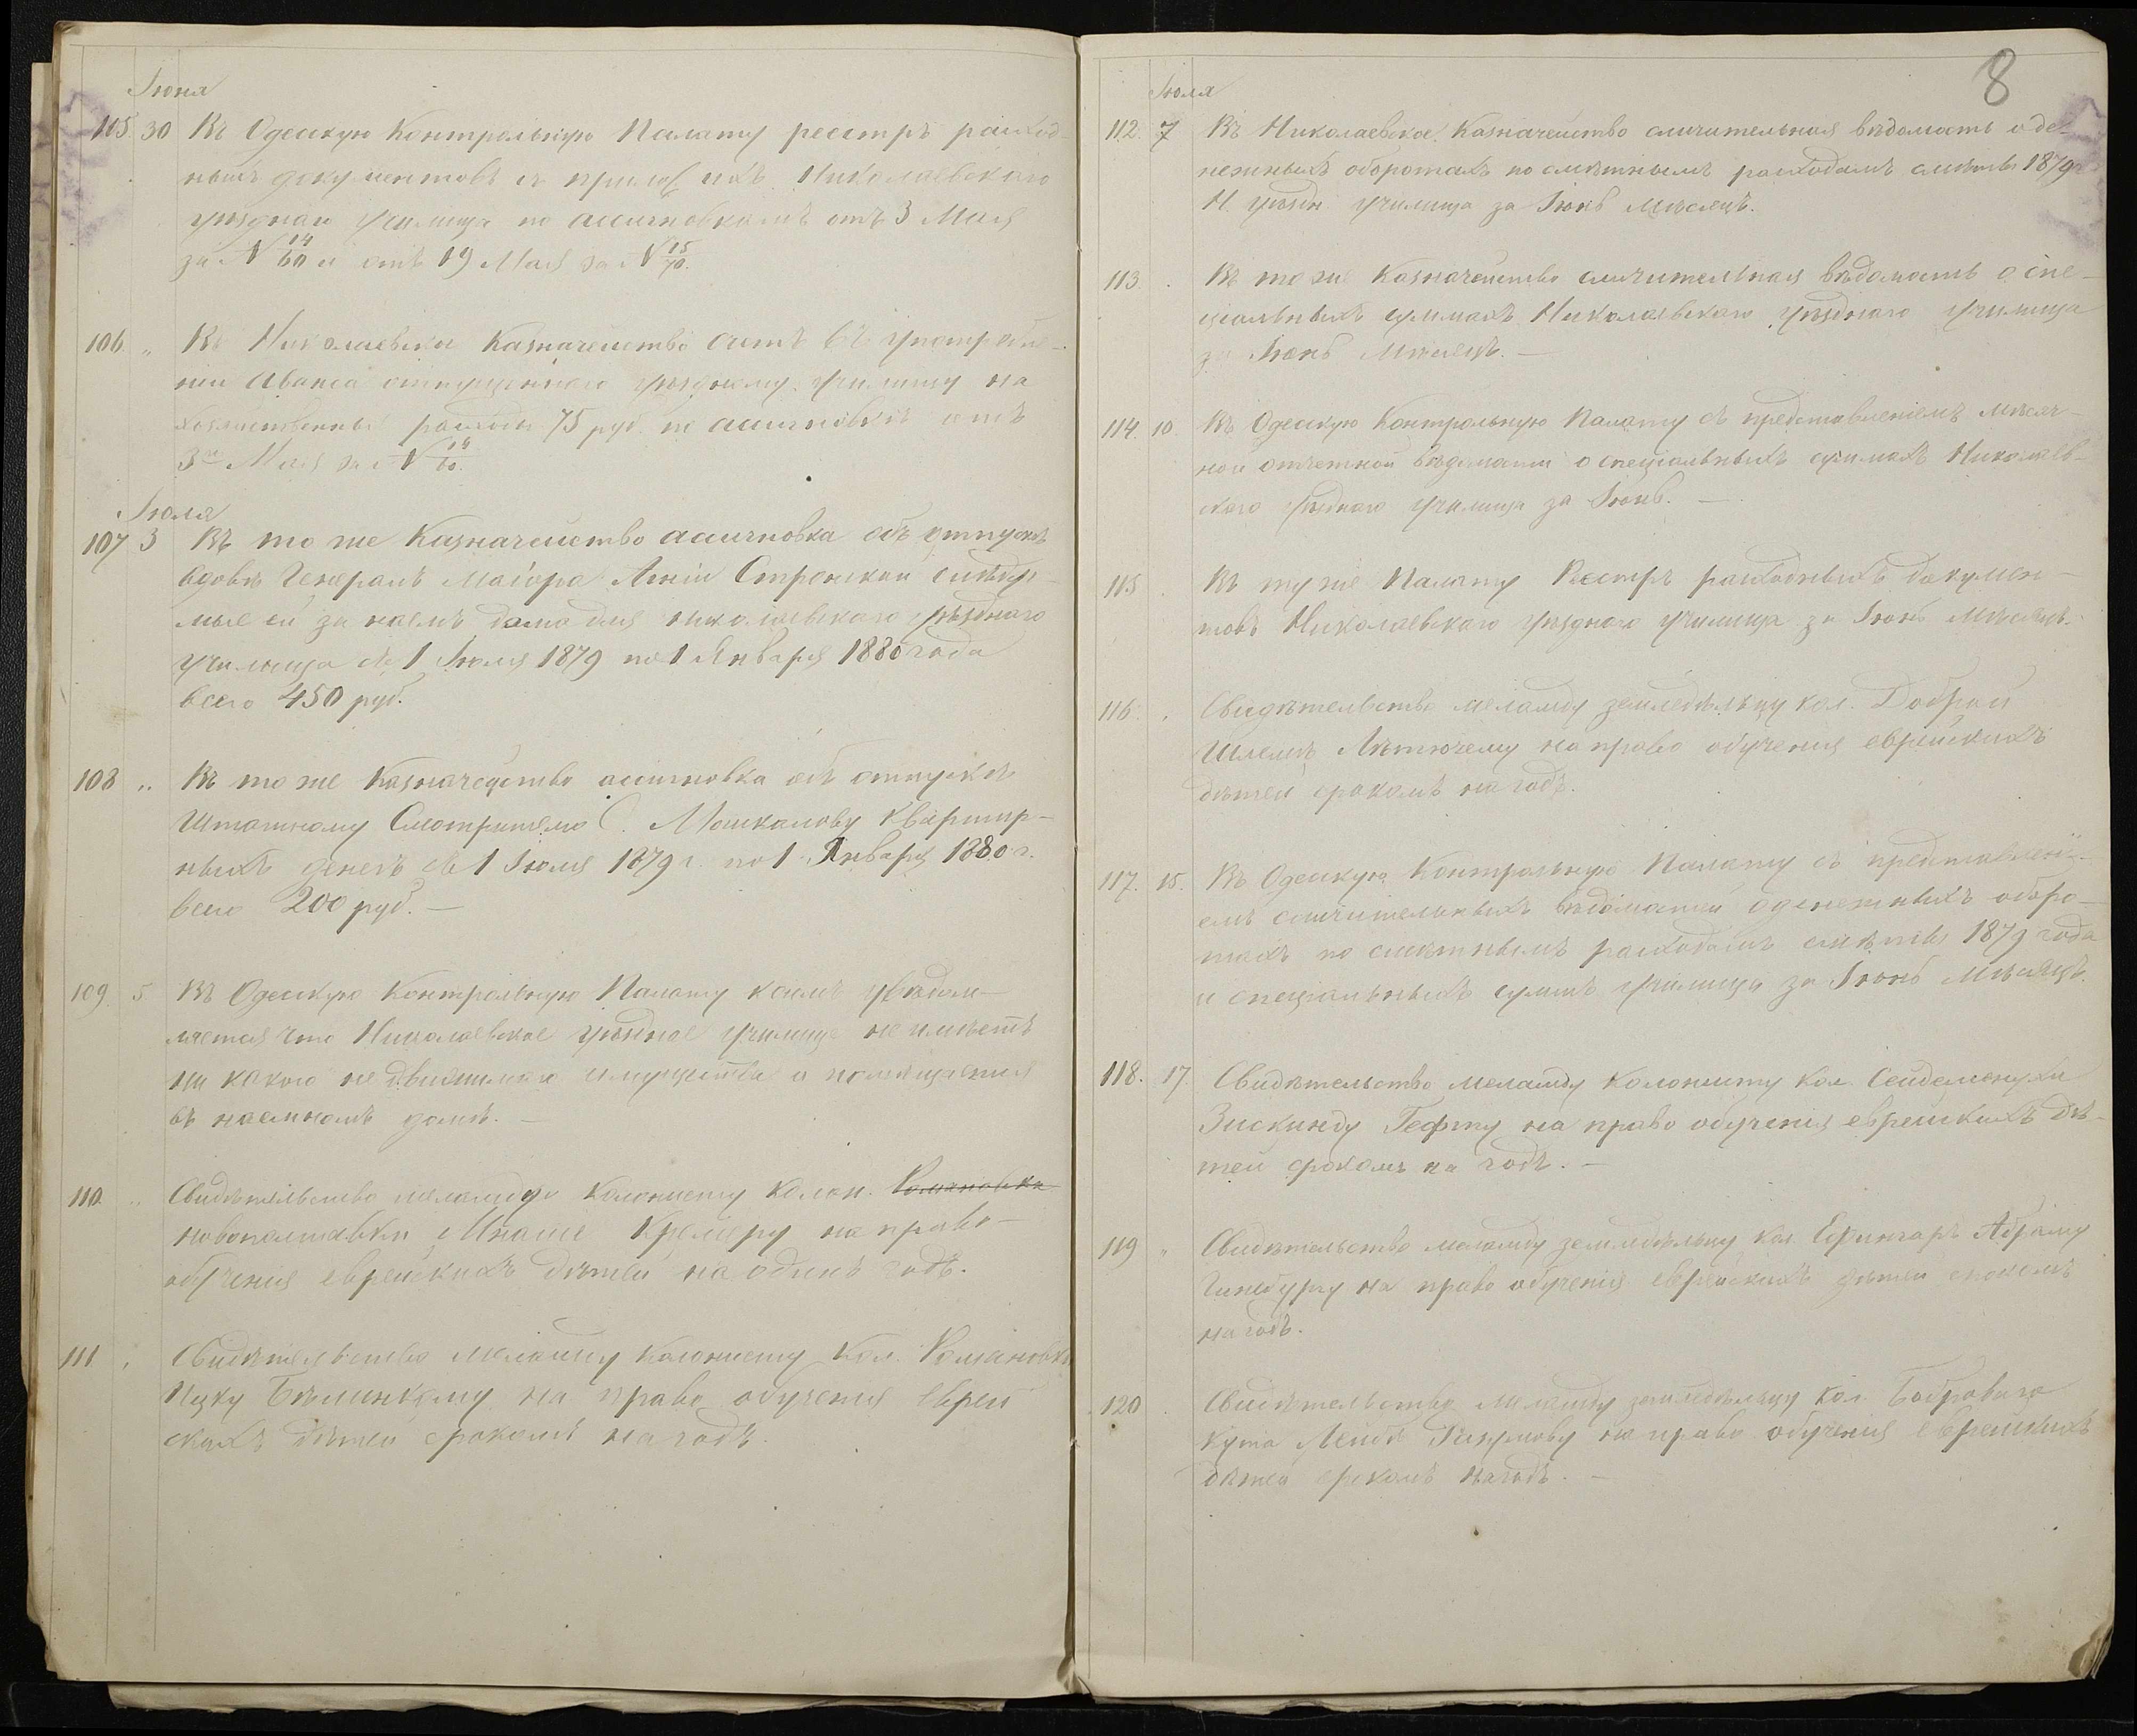 Іюня
105. 30 Въ Одесскую Контрольную Палату реестръ расход-
ныхъ документовъ съ прилож ихъ Николаевскаго
уѣзднаго училища по ассигновкамъ отъ 3 Мая
за N 14/60 и отъ 19 Мая за N 15/70.
106. „ Въ Николаевское Казначейство счетъ въ употребле-
ніи аванса отпущеннаго уѣздному училищу на
хозяйственные расходы 75 руб. по ассигновкѣ отъ
3го Мая за N 14/60.
Іюля
107 3 Въ то же Казначейство ассигновка объ отпускѣ
вдовѣ Генералъ Маіора Аннѣ слѣдуе-
мые ей за наемъ дома для николаевскаго уѣзднаго
училища съ 1 Іюля 1879 по 1 Января 1880 года
всего 450 руб.
108 „ Въ то же Казначейство ассигновка объ отпускѣ
Штатному Смотрителю С. Мошкалову квартир-
ныхъ денегъ съ 1 Іюля 1879 г. по 1 Января 1880 г.
всего 200 руб. —
109. 5 Въ Одесскую Контрольную Палату коимъ увѣдом-
ляется что Николаевское уѣздное училище не имѣетъ
ни какого недвижимаго имущества и помѣщается
въ наемномъ домѣ. —
110. „ Свидѣтельство меламду колонисту колон. Романовки
новополтавки Мнаше Кремеру на право
обученія еврейскихъ дѣтей на одинъ годъ.
111 „ Свидѣтельство меламду колонисту кол. Романовки
Ицку Бѣлинкому на право обученія еврей
скихъ дѣтей срокомъ на годъ.
8
Іюля
112. 7 Въ Николаевское Казначейство сличительная вѣдомость о де-
нежныхъ оборотахъ по смѣтнымъ расходамъ смѣты 1879 г
Н. уѣздн училища за Іюнь мѣсяцъ.
113. . Въ то же Казначейство сличительная вѣдомость о спе-
ціальныхъ суммахъ Николаевскаго уѣзднаго училища
за Іюнь мѣсяцъ. —
114. 10. Въ Одесскую Контрольную Палату съ представленіемъ мѣсяч-
ной отчетной вѣдомости о спеціальныхъ суммахъ Николаев-
скаго уѣзднаго училища за Іюнь. —
115 . Въ ту же Палату Реестръ расходныхъ докумен-
товъ Николаевскаго уѣзднаго училища за Іюнь мѣсяцъ.
116. „ Свидѣтельство меламду земледѣльцу кол. Доброй
Шлемѣ Лѣтючему на право обученія еврейскихъ
дѣтей срокомъ на годъ.
117. 15. Въ Одесскую Контрольную Палату съ представлені-
емъ сличительныхъ вѣдомостей о денежныхъ оборо-
тахъ по смѣтнымъ расходамъ смѣты 1879 года
и спеціальныхъ суммъ училища за Іюнь мѣсяцъ.
118. 17. Свидѣтельство меламду колонисту кол. Сейдеменухи
Зискинду Гефту на право обученія еврейскихъ дѣ-
тей срокомъ на годъ. —
119 „ Свидѣтельство меламду земледѣльцу кол Ефингаръ Абраму
Гинсбургу на право обученія еврейскихъ дѣтей срокомъ
на годъ.
120 . Свидѣтельство меламду земледѣльцу кол Бобровага
кута Лейбѣ на право обученія еврейскихъ
дѣтей срокомъ на годъ. —